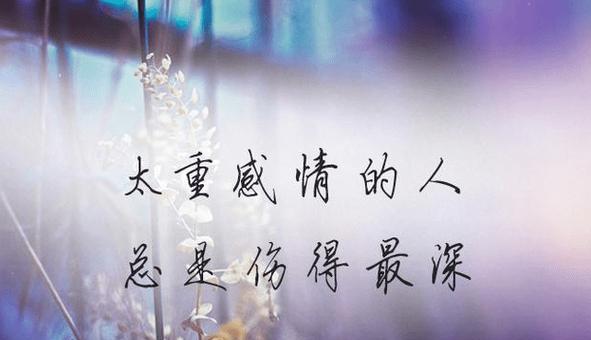 太重感情的人
总是伤得最深